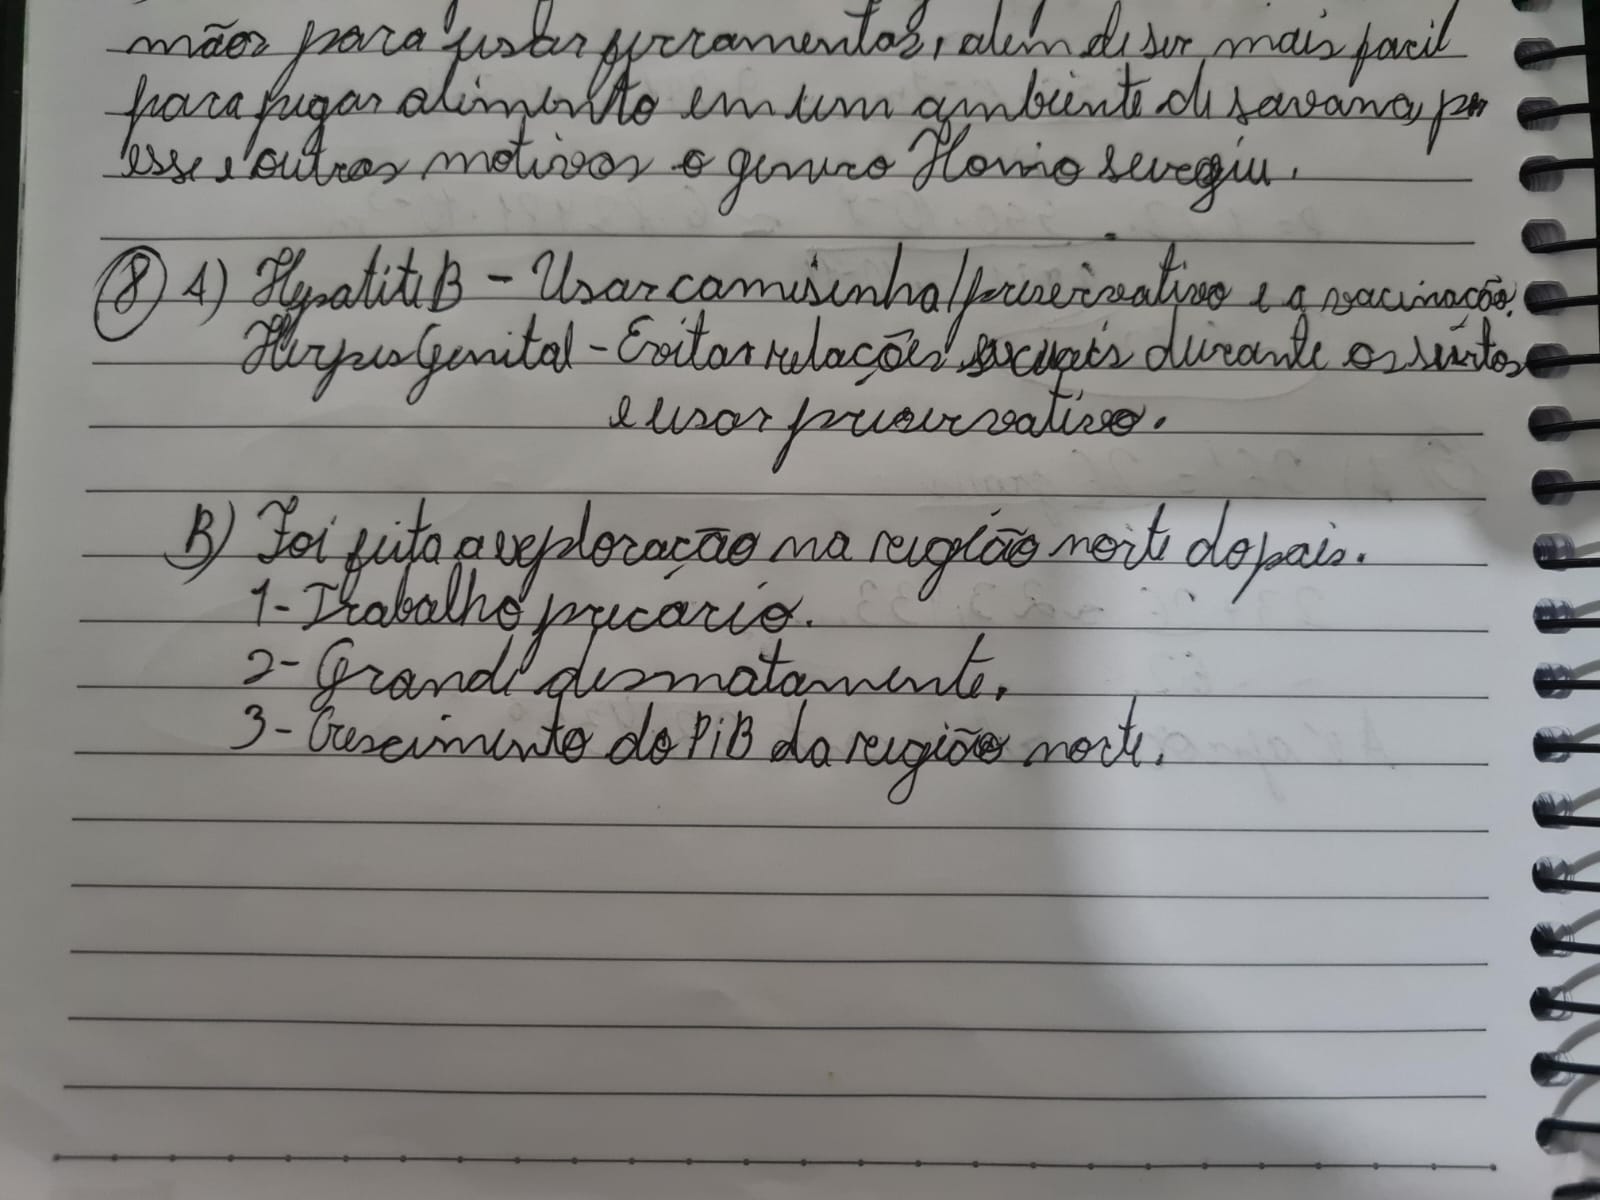 mãos para usar ferramentas, além di ser mais facil
para pegar alimento em um ambiente di savana, por
esse e outros motivos o genero Homo seregiu.
8 A) Hepatite B - Usar camisinha/preservativo e a vacinação.
Herpes Genital - Evitar relações sexuais durante os surtos
e usar preservativo.
B) Foi feita a exploração na região norte do pais.
1- Trabalho precario.
2- Grande desmatamente.
3- Crescimento do PiB da região norte.